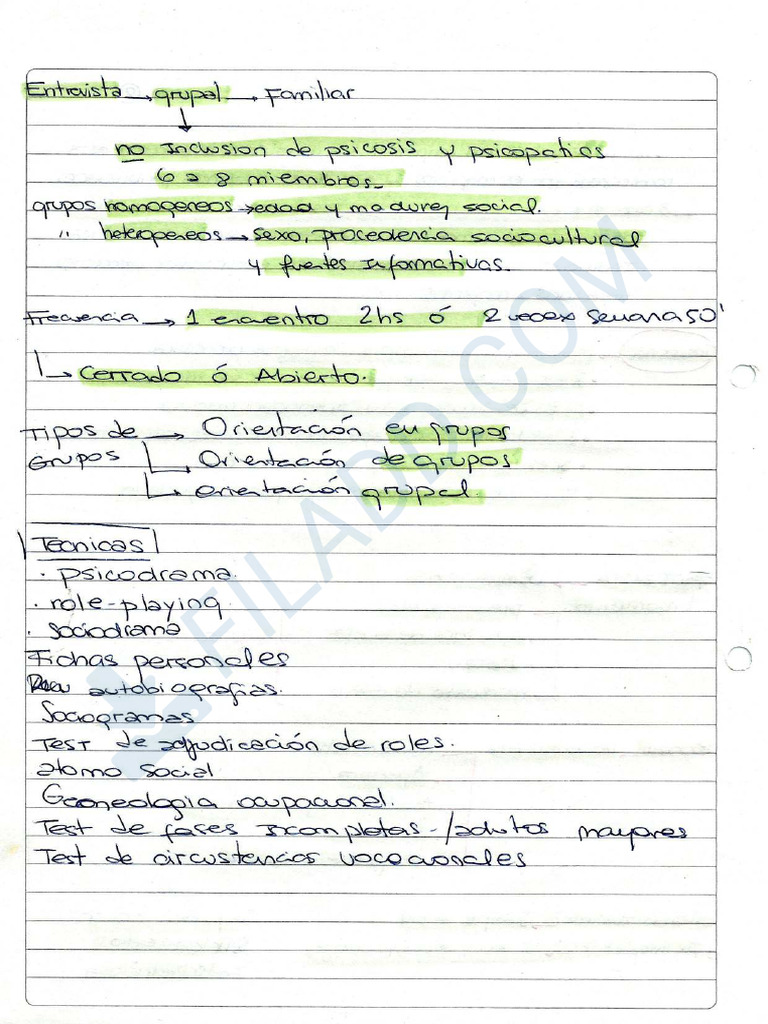 Entrevista → grupal → Familiar
↓
no Inclusion de psicosis y psicopatias
6 a 8 miembros.
grupos homogeneos → edad y madurez social.
" heterogeneos → sexo, procedencia sociocultural
y fuentes Informativas.
Frecuencia → 1 encuentro 2hs ó 2 veces semana 50'
↳ Cerrado ó Abierto.
Tipos de → Orientación en grupos
Grupos ↳ Orientación de grupos
↳ orientación grupal.
Tecnicas
· psicodrama.
· role-playing.
· sociodrama
Fichas personales
autobiografias.
Sociogramas
Test de adjudicación de roles.
atomo social
Geneologia ocupacional.
Test de fases Incompletas -/adultos mayores
Test de circustancias vocacionales
FILADD.COM